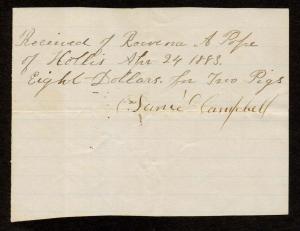 Received of Rowena A Pope
of Hollis Apr 24 1883.
Eight Dollars. for Two Pigs
Daniel Campbell